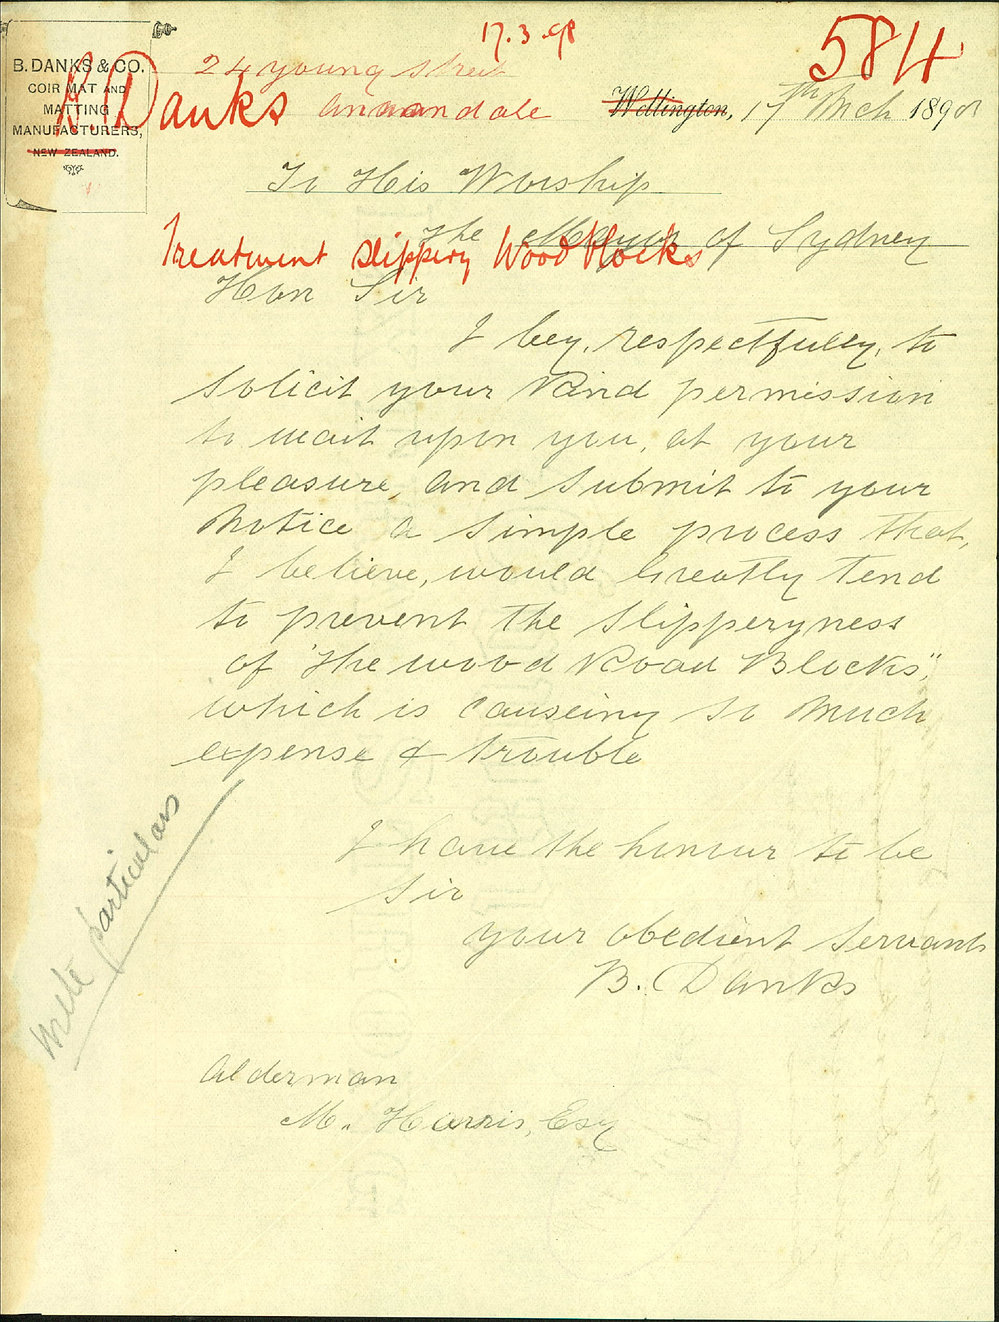 17.3.98
584
B. DANKS & CO.
COIR MAT AND
MATTING
MANUFACTURERS,
NEW ZEALAND.
B. Danks
24 young Street
Annandale
Wellington, 17th Mch 1898
To His Worship
The Mayor of Sydney
Treatment slippery Wood Blocks
Hon Sir
I beg, respectfully, to
solicit your kind permission
to wait upon you, at your
pleasure, and submit to your
notice a simple process that,
I believe, would greatly tend
to prevent the slipperyness
of "the wood Road Blocks",
which is causeing so much
expense & trouble
I have the honour to be
Sir
your obedient servant
B. Danks
Write particulars
Alderman
M. Harris, Esq